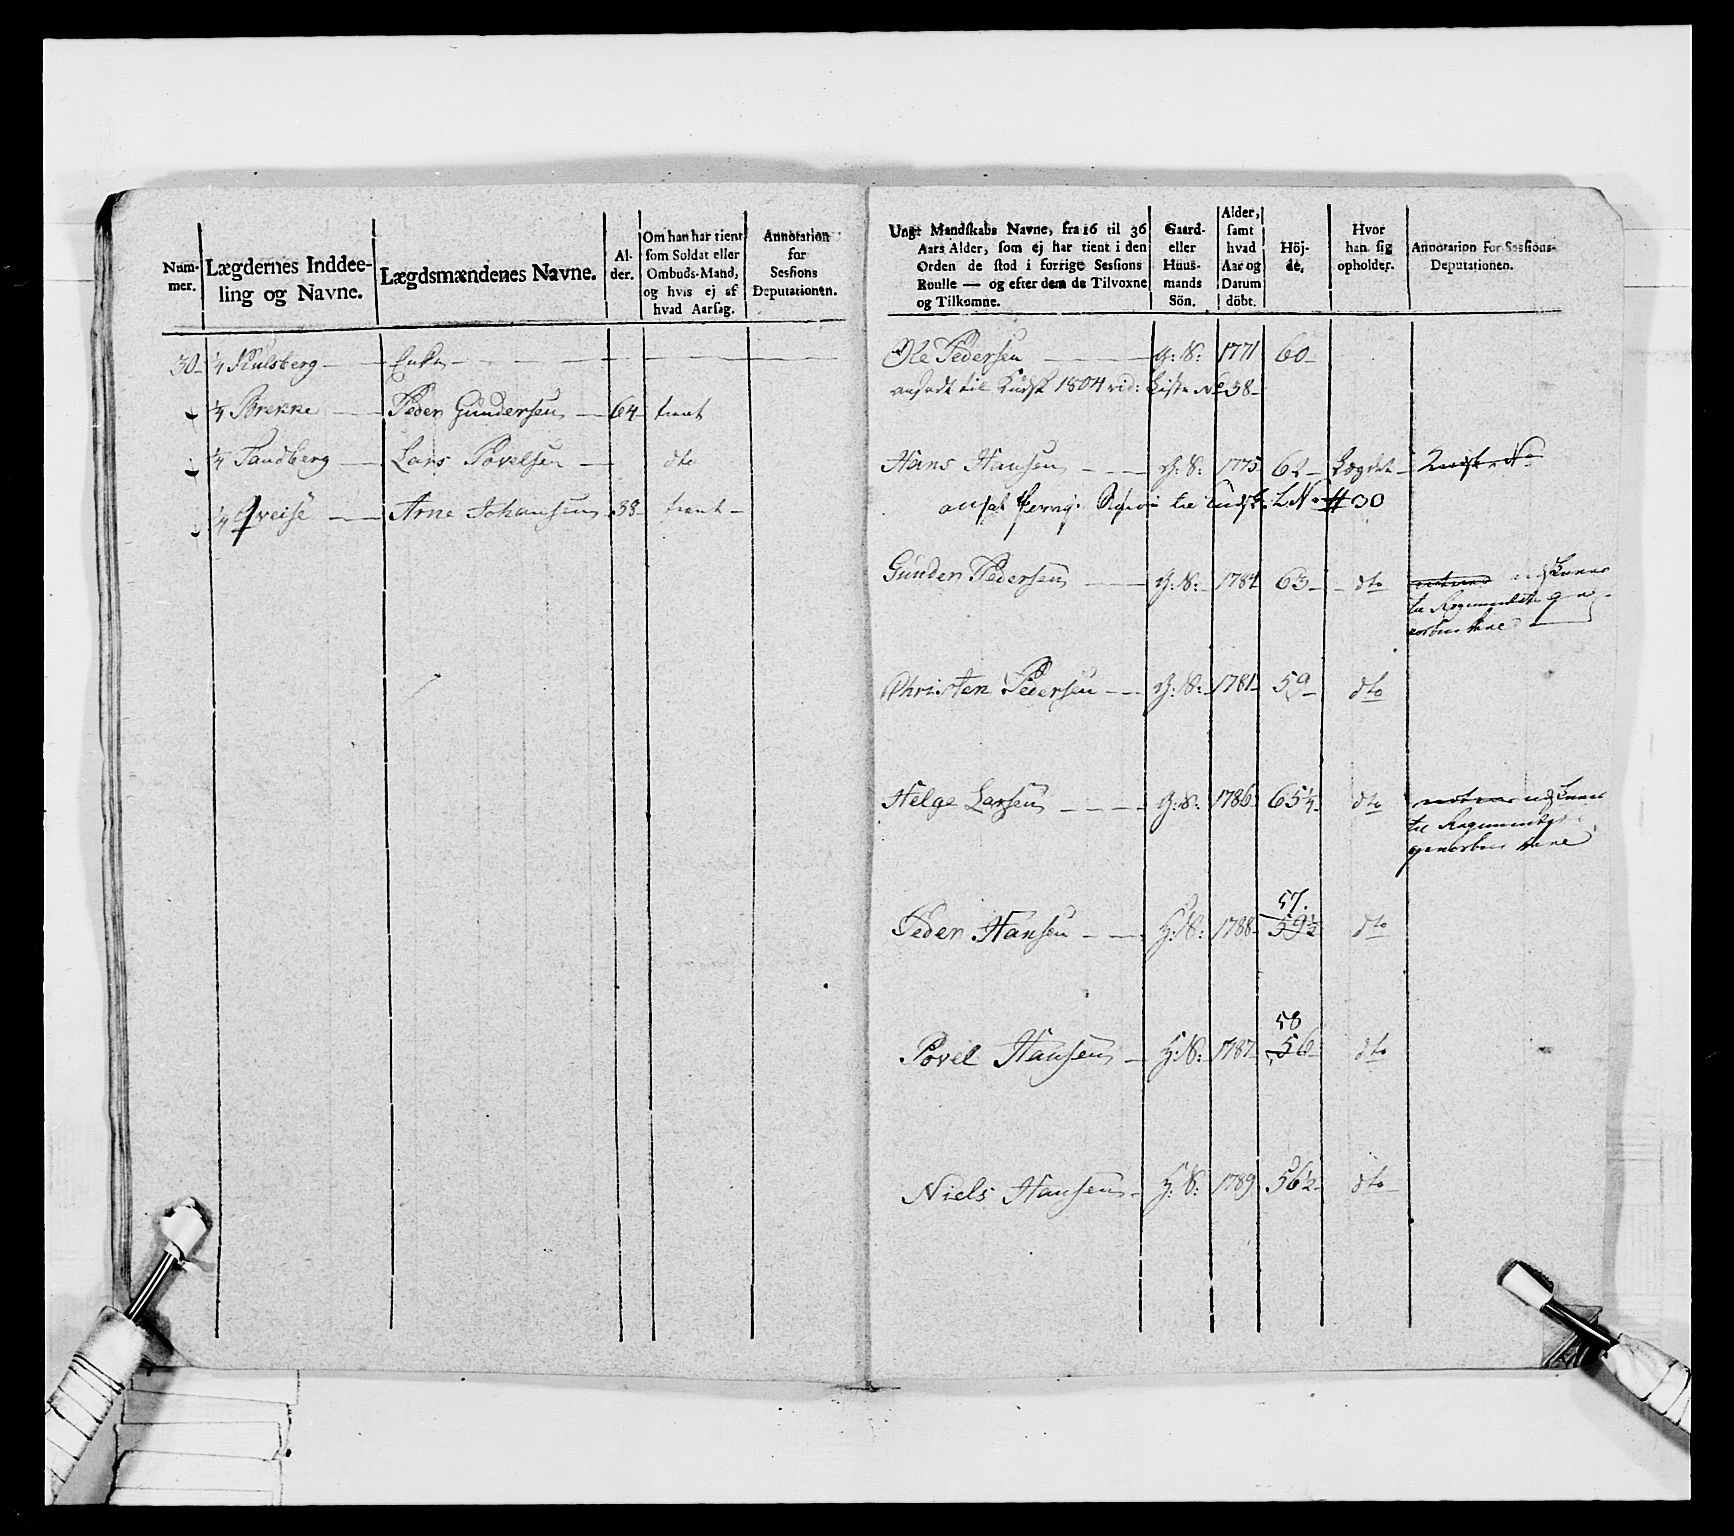 Num-
mer.
Lægdernes Inddee-
ling og Navne.
Lægdsmændenes Navne.
Al-
der.
Om han har tient
som Soldat eller
Ombuds-Mand,
og hvis ej af
hvad Aarsag.
Annotation
for
Sessions
Deputationen.
30 1/4 Kulsberg Enke
1/4 Brekke Peder Gundersen 64 tient
1/4 Sandberg Lars Povelsen dto
1/4 Qveise Arne Johansen 38 tient
Ungt Mandskabs Navne, fra 16 til 36
Aars Alder, som ej har tient i den
Orden de stod i forrige Sessions
Roulle — og efter dem de Tilvoxne
og Tilkomne.
Gaard-
eller
Huus-
mands
Sön.
Alder,
samt
hvad
Aar og
Datum
döbt.
Höj-
de.
Hvor
han sig
opholder.
Annotation for Sessions-
Deputationen.
Ole Pedersen G: S: 1771 60
ansadt til Uudsk 1804 vid: Liste No 38
Hans Hansen G: S: 1775 62 Lægdet
ansat til Uudsk: L. No 30
Gunder Pedersen G: S: 1784 63 dto
til Regimentet
Christen Pedersen G: S: 1781 59 dto
Helge Larsen G: S: 1786 65 1/4 dto
til Regimentet
57.
Peder Hansen H: S: 1788 59 1/2 dto
58
Povel Hansen H: S: 1787 56 dto
Niels Hansen H: S: 1789 56 1/2 dto